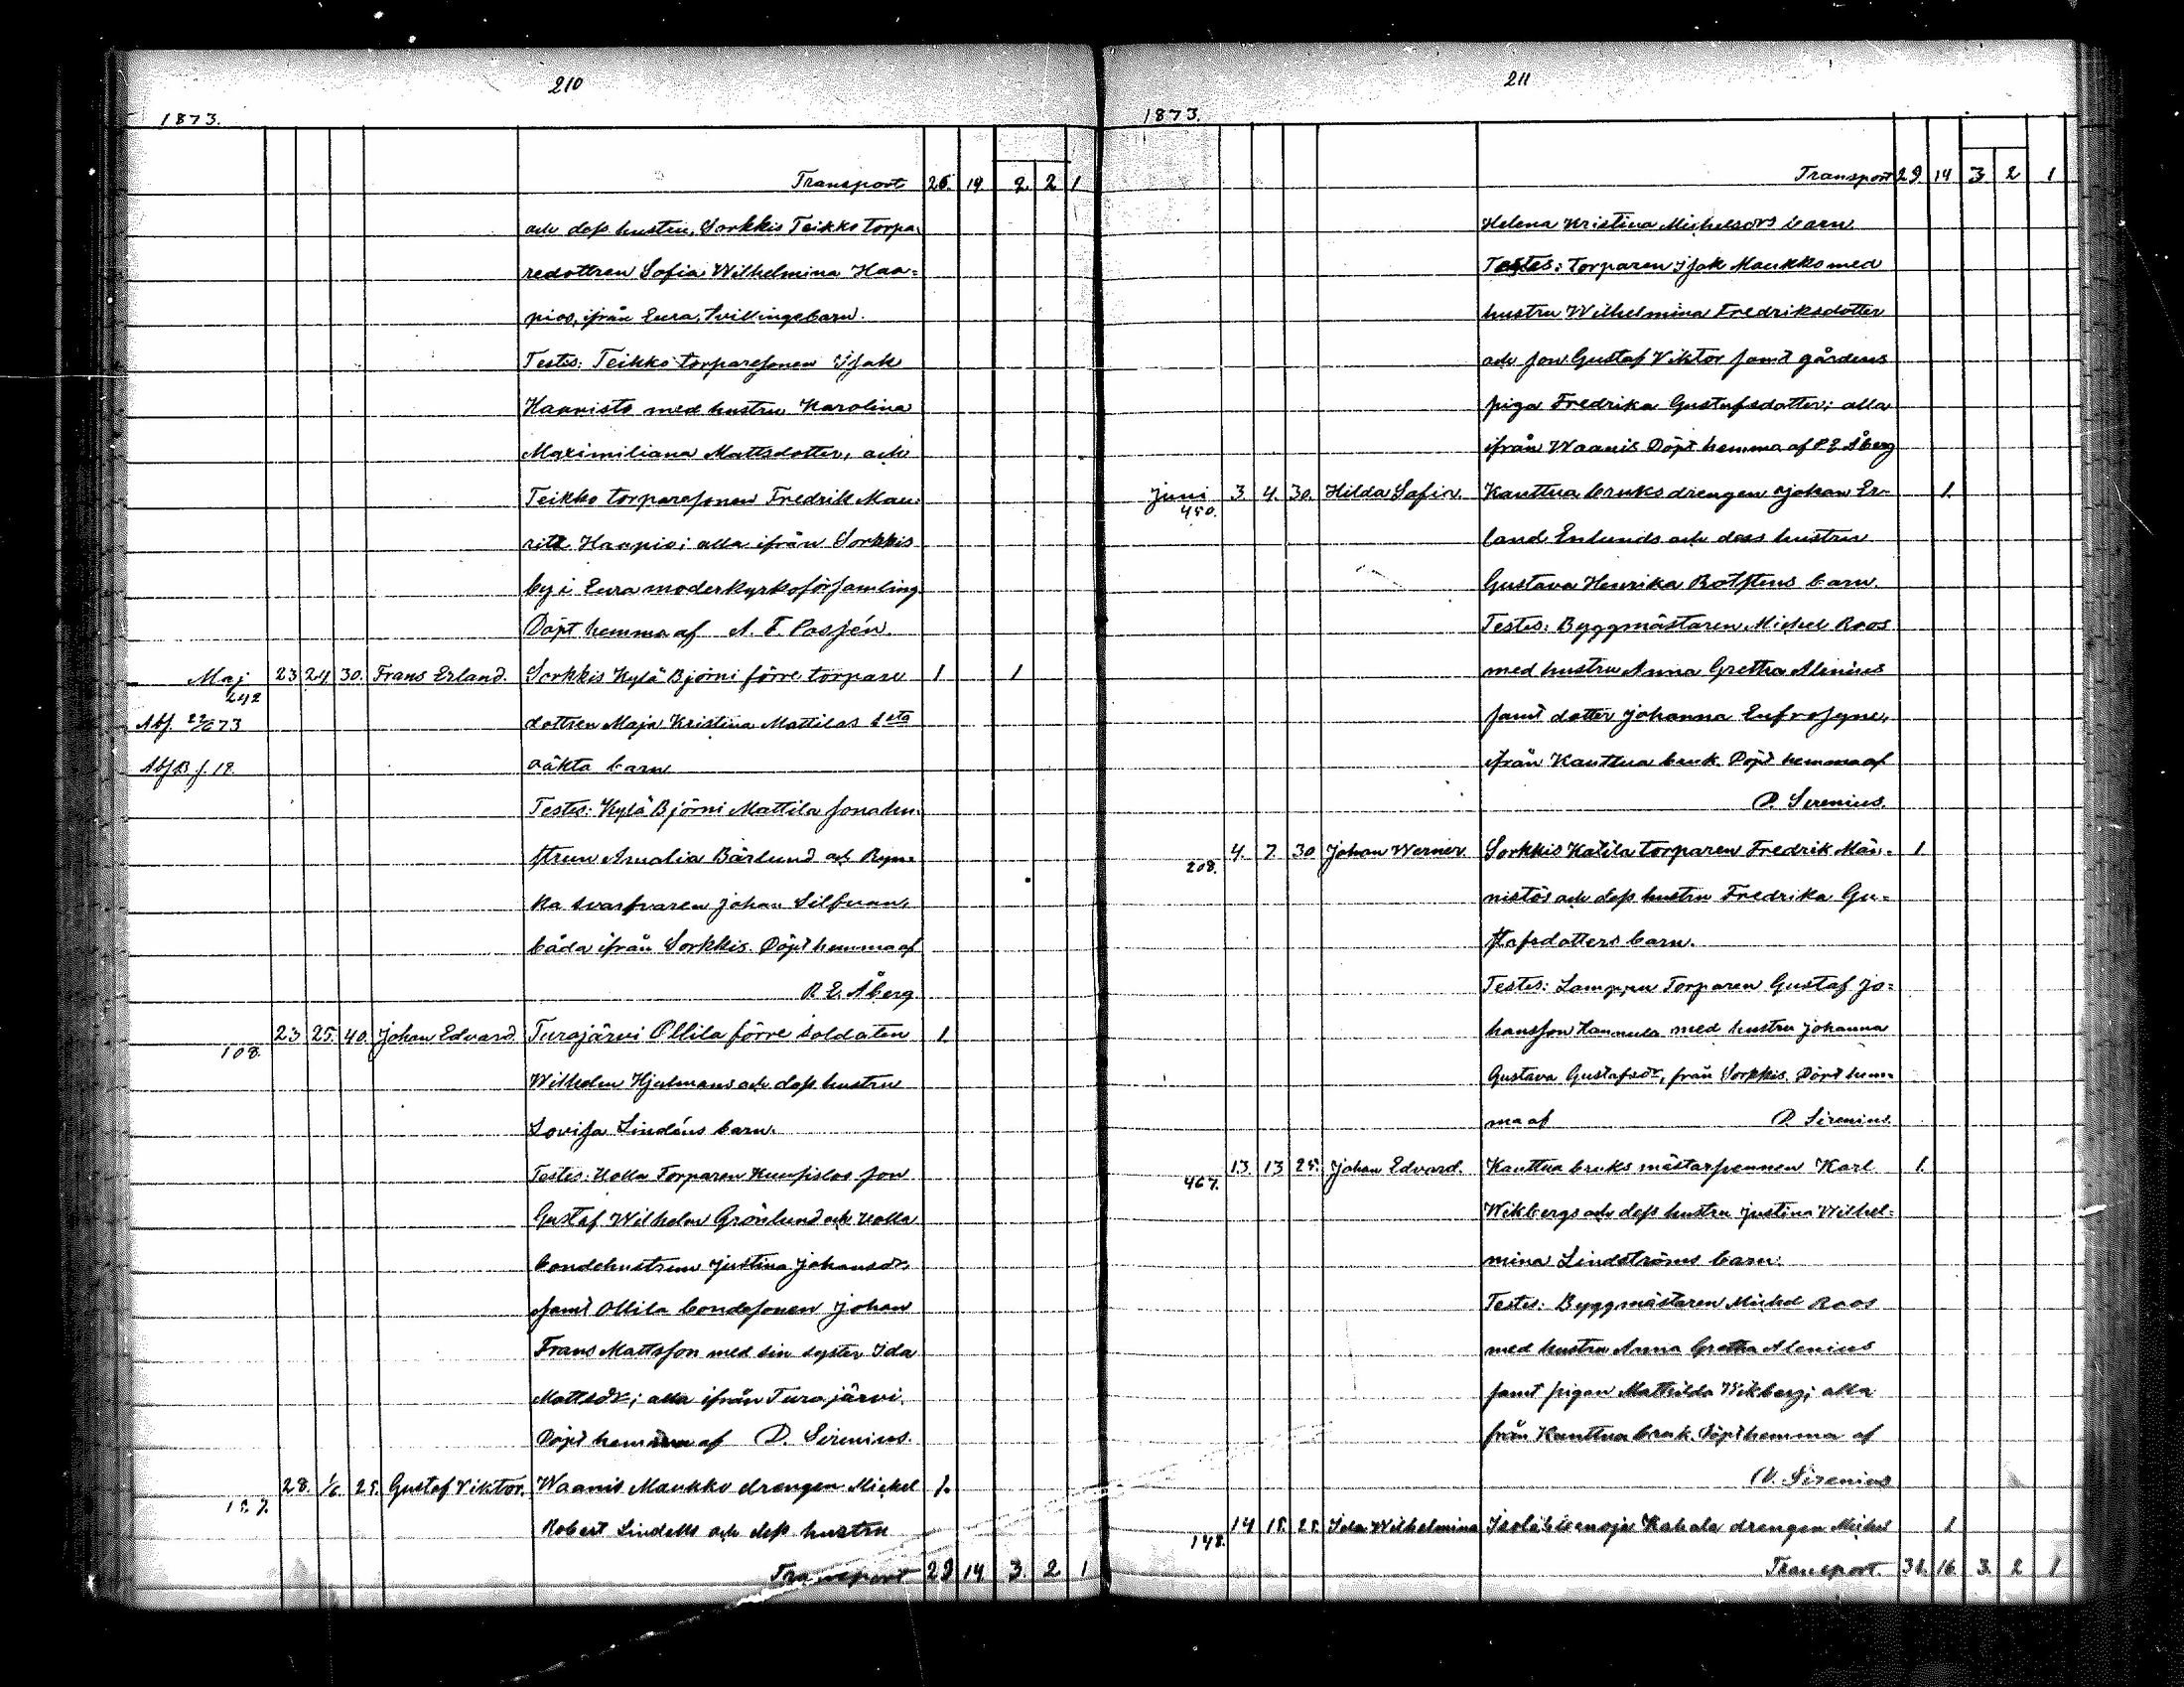 210
1873.
Transport 26. 14 2. 2 1
och dess hustru, Sorkkis Teikko torpa-
redottren Sofia Wilhelmina Haa-
pios, ifrån Eura, Tvillingebarn.
Testes: Teikko torparesonen Isak
Haavisto med hustru Karolina
Maximiliana Mattsdotter, och
Teikko torparesonen Fredrik Mau-
ritz Haapio; alla ifrån Sorkkis
by i Eura moderkyrkoförsamling
Döpt hemma af A. F. Posjén.
Maj 23 24 30. Frans Erland. Sorkkis Kylä Björni förre torpare 1 1
242
Abf. 23/6 73 dottren Maja Kristina Mattilas 1sta
Abf B f. 19. oäkta barn
Testes: Kylä Björni Mattila sonahu-
strun Amalia Bärlund och Ryn-
ka svarfvaren Johan Silfvan,
båda ifrån Sorkkis. Döpt hemma af
R. E. Åberg
23 25. 40. Johan Edvard. Turajärvi Ollila förre soldaten 1.
108.
Wilhelm Hjelmans och dess hustru
Lovisa Lindéns barn.
Testes: Uolla Torparen son
Gustaf Wilhelm Grönlund och Uolla
bondehustrun Justina Johansdr,
samt Ollila bondesonen Johan
Frans Mattsson med sin syster Ida
Mattsdr; alla ifrån Turajärvi.
Döpt hemma af D. Sirenius.
28. 1/6. 25. Gustaf Viktor. Waanis Maukko drengen Mickel 1.
157.
Robert Lindells och dess hustru
Transport 29 14 3. 2 1
211
1873.
Transport 29. 14 3 2 1
Helena Kristina Michelsdrs barn
Testes: Torparen Isak Maukko med
hustru Wilhelmina Fredriksdotter
och son Gustaf Viktor samt gårdens
piga Fredrika Gustafsdotter; alla
ifrån Waanis Döpt hemma af R E Åberg
Juni 3 4. 30. Hilda Sofia. Kauttua bruks drengen Johan Er- 1.
450.
land Enlunds och dess hustru
Gustava Henrika Rotstens barn.
Testes: Byggmästaren Michel Roos
med hustru Anna Gretha Alenius
samt dotter Johanna Eufrosyne,
ifrån Kauttua bruk. Döpt hemma af
D. Sirenius.
4. 7. 30 Johan Werner. Sorkkis Katila torparen Fredrik Män- 1.
208.
nistös och dess hustru Fredrika Gu-
stafsdotters barn.
Testes: Lamppu Torparen Gustaf Jo-
hansson Hannula med hustru Johanna
Gustava Gustafsdr, från Sorkkis. Döpt hem-
ma af D. Sirenius.
13. 13 25. Johan Edvard. Kauttua bruks mästarsvennen Karl 1.
467.
Wikbergs och dess hustru Justina Wilhel-
mina Lindströms barn.
Testes: Byggmästaren Michel Roos
med hustru Anna Gretha Alenius
samt pigan Mathilda Wikberg; alla
från Kauttua bruk. Döpt hemma af
D. Sirenius
14 15. 25. Ida Wilhelmina Isoläkkenoja Kahala drengen Michel 1
148.
Transport. 31. 16. 3. 2 1